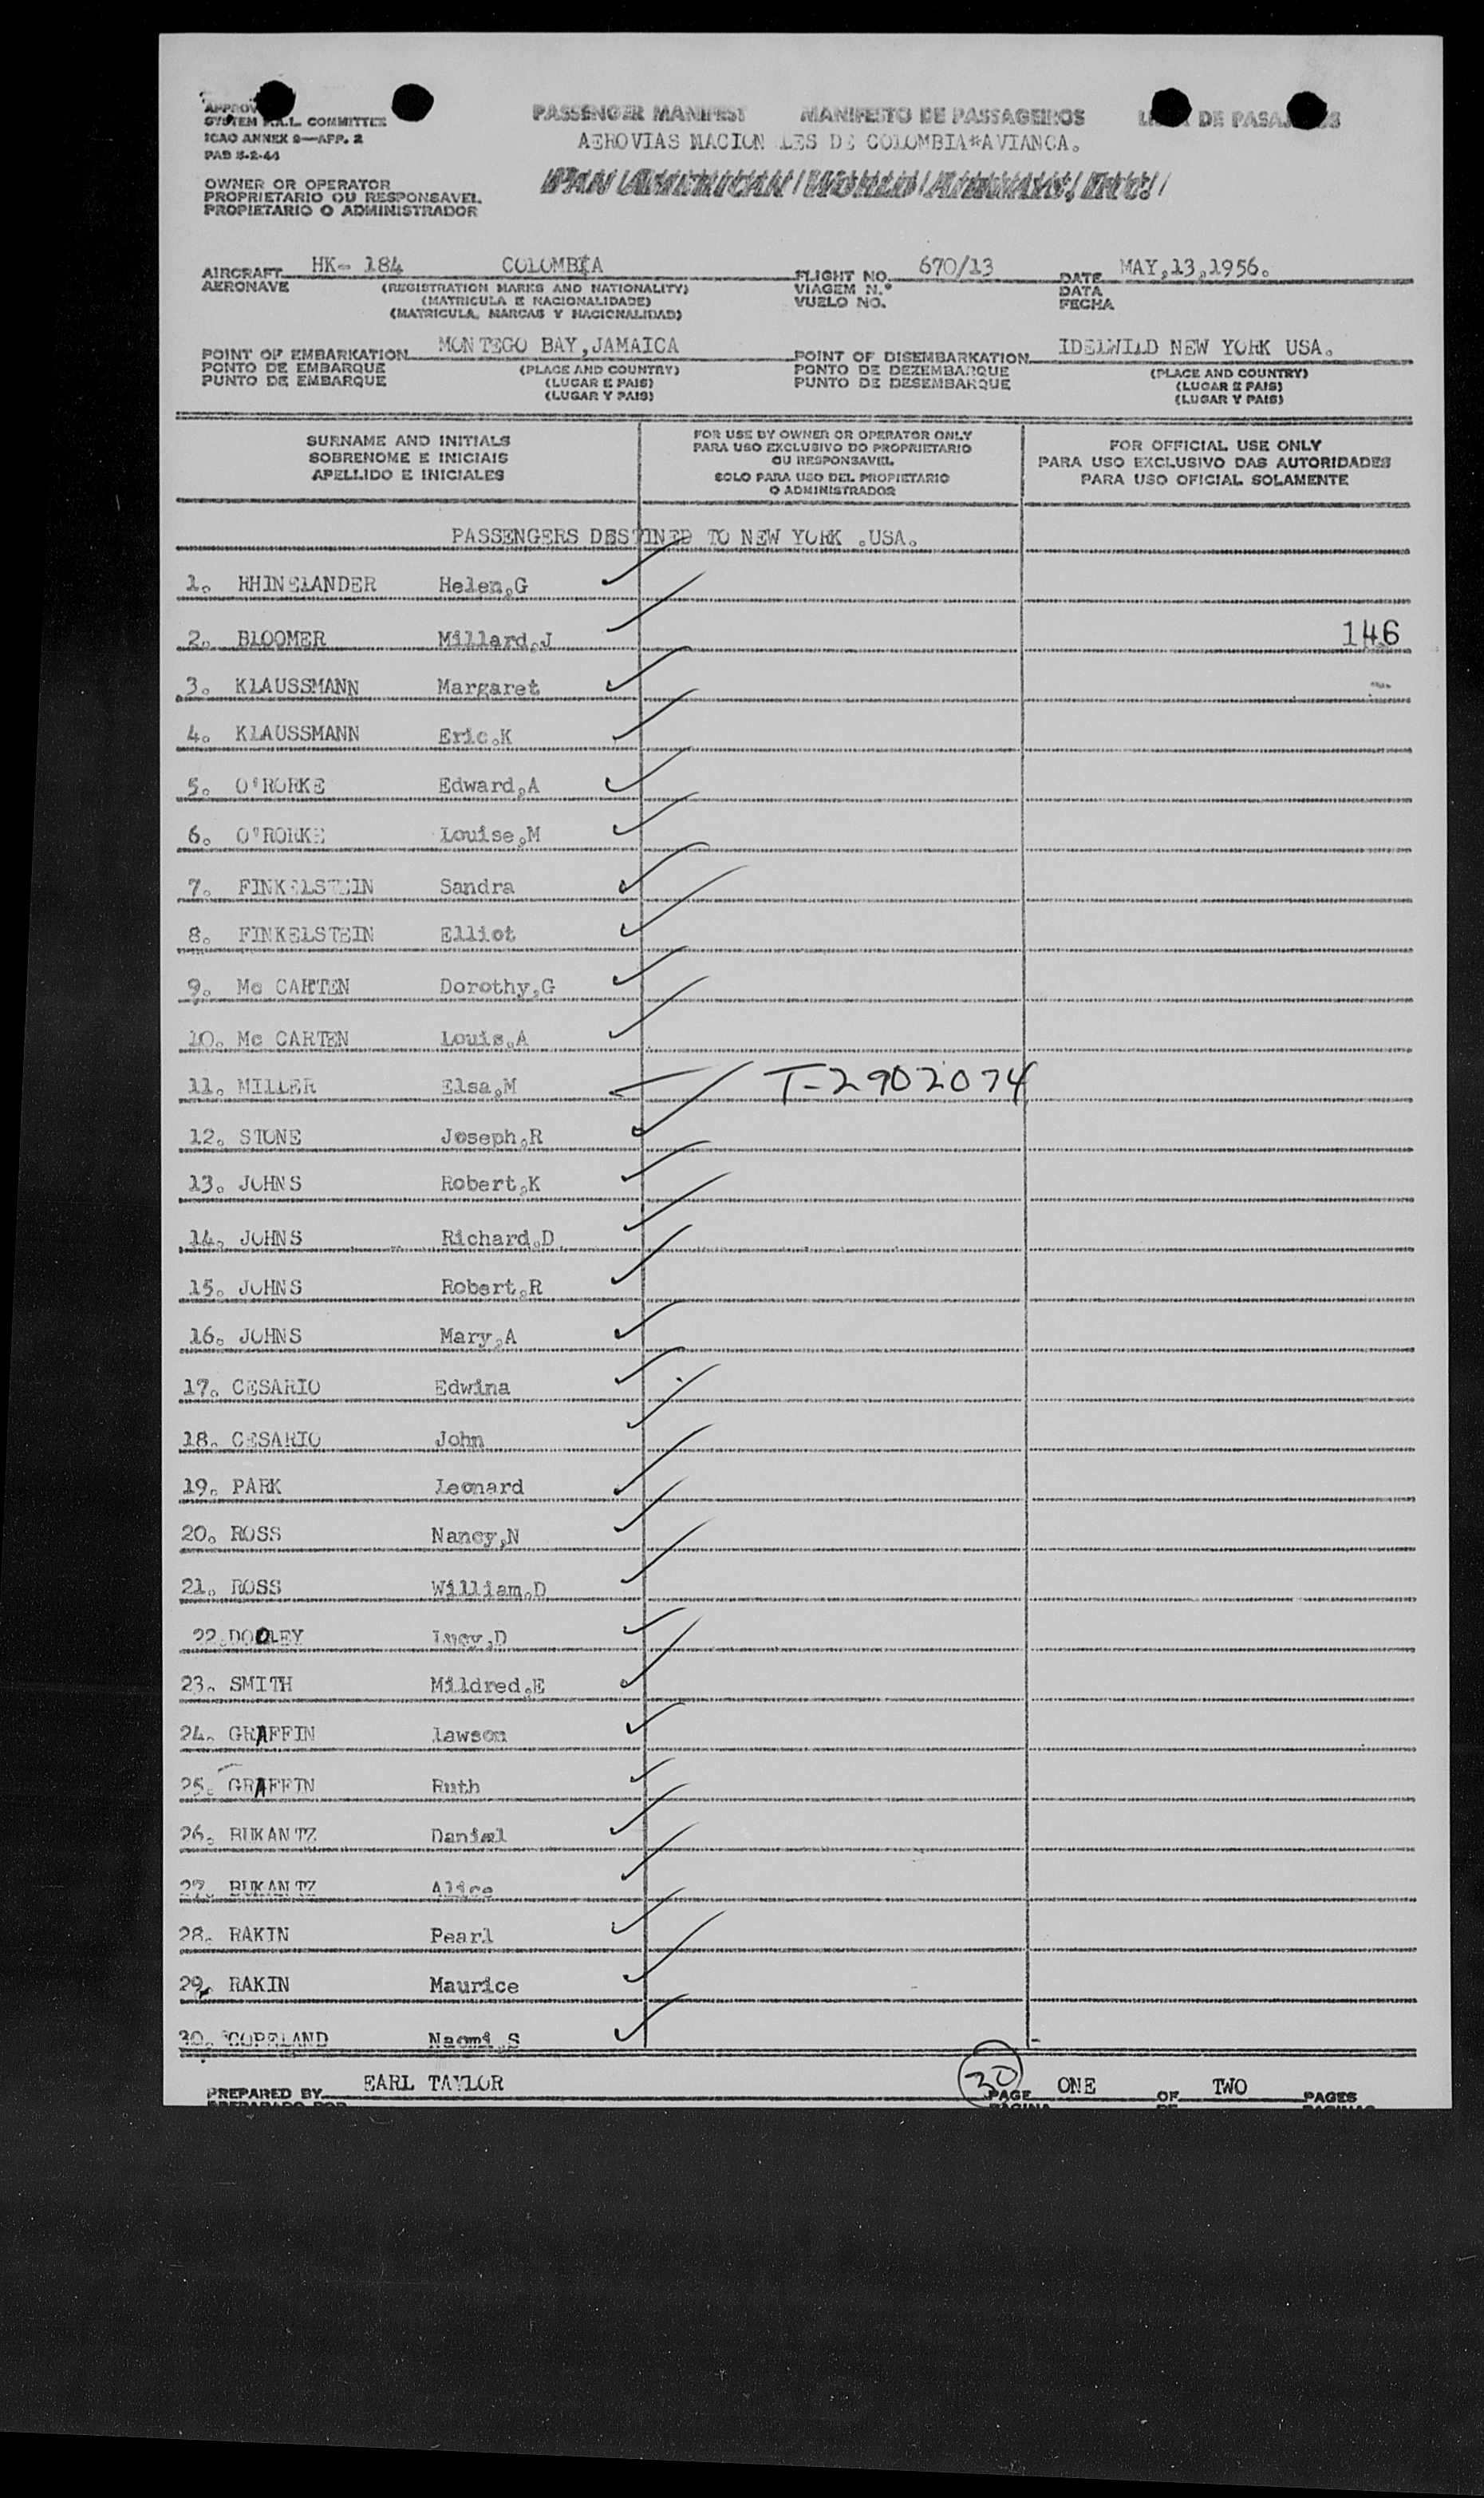 PASSENGER MANIFEST MANIFESTO DE PASSAGEIROS DE
SYSTEM F.A.L. COMMITTEE
ICAO ANNEX 9—APP. 2
PAB 5-2-44
AEROVIAS NACION LES DE COLOMBIA*AVIANCA.
PAN AMERICAN WORLD AIRWAYS, INC.
OWNER OR OPERATOR
PROPRIETARIO OU RESPONSAVEL
PROPIETARIO O ADMINISTRADOR
AIRCRAFT HK- 184 COLOMBIA FLIGHT NO. 670/13 DATE MAY,13,1956.
AERONAVE (REGISTRATION MARKS AND NATIONALITY) VIAGEM N.º DATA
(MATRICULA E NACIONALIDADE) VUELO NO. FECHA
(MATRICULA, MARCAS Y NACIONALIDAD)
POINT OF EMBARKATION MONTEGO BAY,JAMAICA POINT OF DISEMBARKATION IDELWILD NEW YORK USA.
PONTO DE EMBARQUE (PLACE AND COUNTRY) PONTO DE DEZEMBARQUE (PLACE AND COUNTRY)
PUNTO DE EMBARQUE (LUGAR E PAIS) PUNTO DE DESEMBARQUE (LUGAR E PAIS)
(LUGAR Y PAIS) (LUGAR Y PAIS)
SURNAME AND INITIALS
SOBRENOME E INICIAIS
APELLIDO E INICIALES
FOR USE BY OWNER OR OPERATOR ONLY
PARA USO EXCLUSIVO DO PROPRIETARIO
OU RESPONSAVEL
SOLO PARA USO DEL PROPIETARIO
O ADMINISTRADOR
FOR OFFICIAL USE ONLY
PARA USO EXCLUSIVO DAS AUTORIDADES
PARA USO OFICIAL SOLAMENTE
PASSENGERS DESTINED TO NEW YORK .USA.
1. RHINELANDER Helen,G
2. BLOOMER Millard,J 146
3. KLAUSSMANN Margaret
4. KLAUSSMANN Eric.K
5. O'RORKE Edward,A
6. O'RORKE Louise,M
7. FINKELSTEIN Sandra
8. FINKELSTEIN Elliot
9. Mc CARTEN Dorothy,G
10. Mc CARTEN Louis,A
11. MILLER Elsa,M T-2902074
12. STONE Joseph,R
13. JOHNS Robert,K
14. JOHNS Richard,D
15. JOHNS Robert,R
16. JOHNS Mary,A
17. CESARIO Edwina
18. CESARIO John
19. PARK Leonard
20. ROSS Nancy,N
21. ROSS William,D
22.DOOLEY Lucy,D
23. SMITH Mildred,E
24. GRAFFIN Lawson
25. GRAFFIN Ruth
26. BUKANTZ Daniel
27. BUKANTZ Alice
28. RAKIN Pearl
29. RAKIN Maurice
30. COPELAND Naomi,S
30
PREPARED BY EARL TAYLOR PAGE ONE OF TWO PAGES